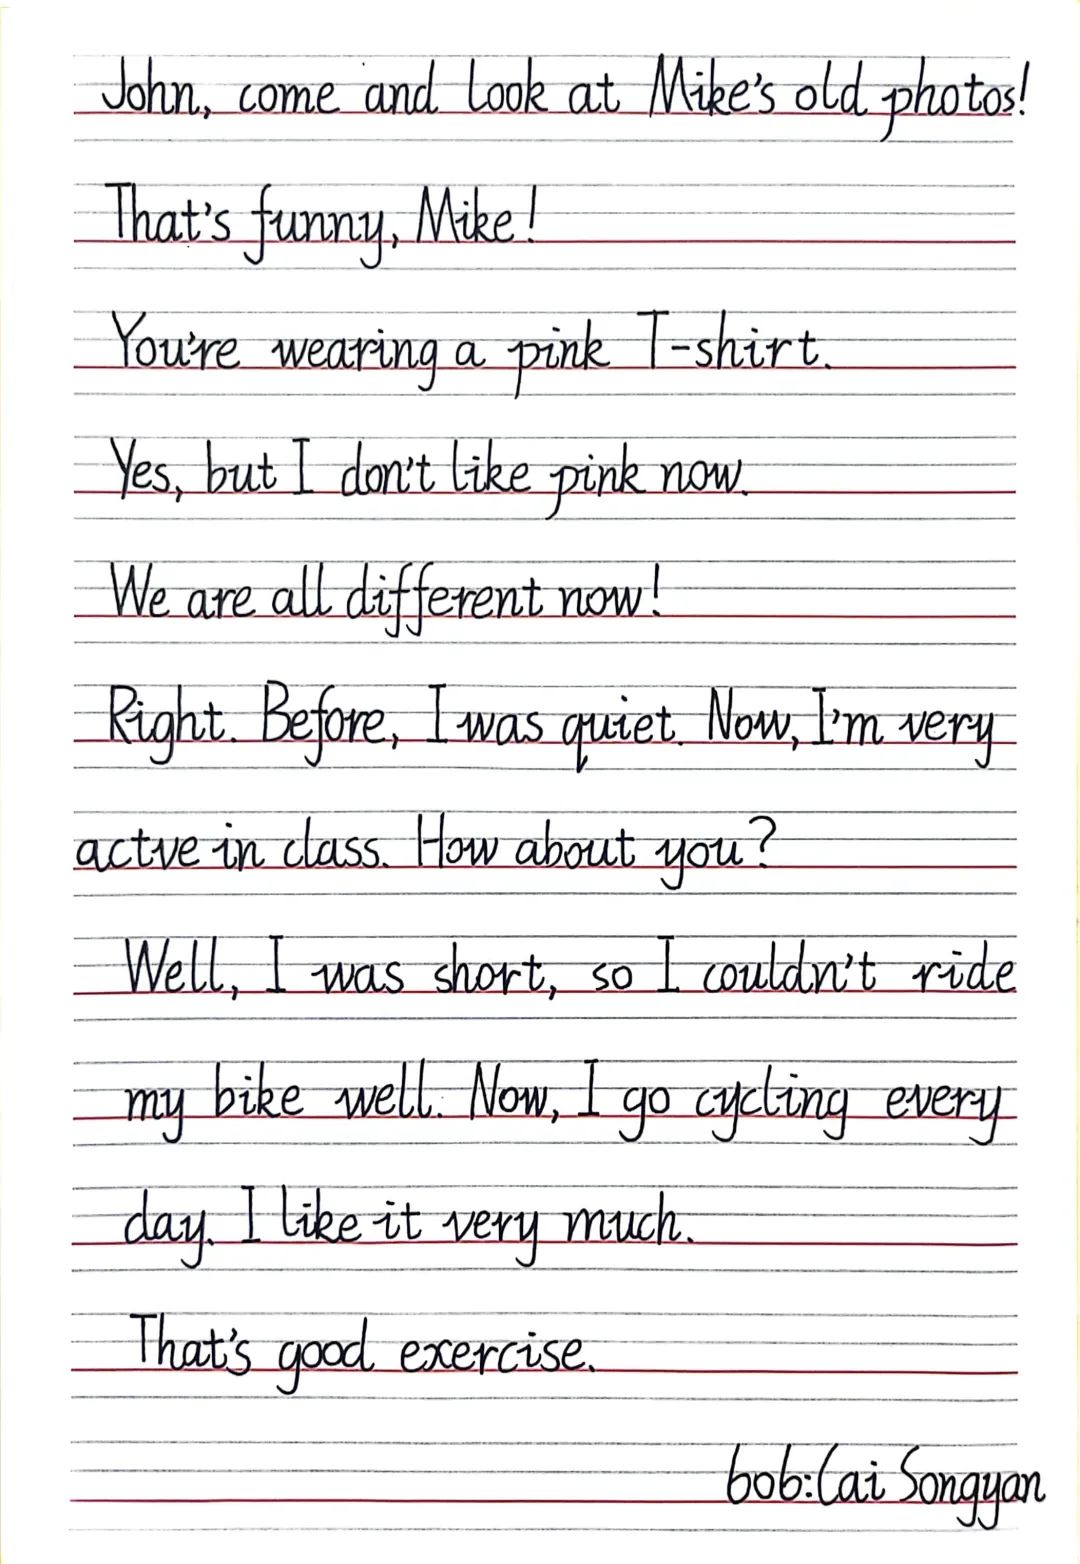 John, come and look at Mike's old photos!
That's funny, Mike!
You're wearing a pink T-shirt.
Yes, but I don't like pink now.
We are all different now!
Right. Before, I was quiet. Now, I'm very
actve in class. How about you?
Well, I was short, so I couldn't ride
my bike well. Now, I go cycling every
day. I like it very much.
That's good exercise.
bob:Cai Songyan